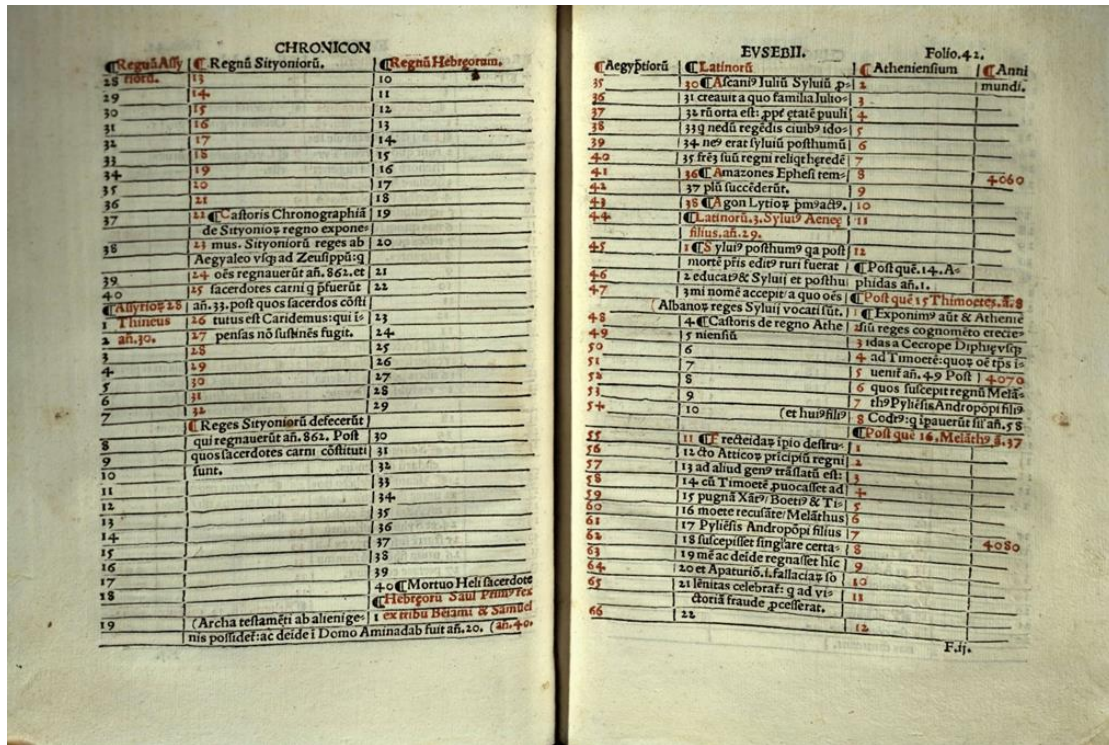 CHRONICON
¶Regnũ Assy ¶. Regnũ Sityoniorũ. ¶Regnũ Hebręorum.
28 riorũ. 13 10
29 14 11
30 15 12
31 16 13
32 17 14
33 18 15
34 19 16
35 20 17
36 21 18
37 22 ¶Castoris Chronographiã 19
de Sityonioꝝ regno expone-
38 23 mus. Sityoniorũ reges ab 20
Aegyaleo vsqꝫ ad Zeusippũ: q
39 24 oẽs regnauerũt añ. 862. et 21
40 25 sacerdotes carni q p̃fuerũt 22
¶Assyrioꝝ 28 añ. 33. post quos sacerdos cõsti
1 Thineus 26 tutus est Caridemus: qui ĩ- 23
2 añ. 30. 27 pensas nõ sustinẽs fugit. 24
3 28 25
4 29 26
5 30 27
6 31 28
7 32 29
¶Reges Sityoniorũ defecerũt
8 qui regnauerũt añ. 862. Post 30
9 quos sacerdotes carni cõstituti 31
10 sunt. 32
11 33
12 34
13 35
14 36
15 37
16 38
17 39
18 40 ¶Mortuo Heli sacerdote
¶Hebręorũ Saul Primꝰ rex
19 1 ex tribu Beiami & Samuel
(Archa testamẽti ab alienige- (añ. 40.
nis possidet: ac deide ĩ Domo Aminadab fuit añ. 20.
EVSEBII. Folio. 42.
¶Aegyp̃tiorũ ¶Latinorũ ¶Atheniensium ¶Anni
mundi.
35 30 ¶Ascaniꝰ Juliũ Syluiũ ꝓ- 2
36 31 creauit a quo familia Iulio- 3
37 32 rũ orta est: ꝓpt̃ ętatẽ puuli 4
38 33 q nedũ regẽdis ciuibꝰ ido- 5
39 34 neꝰ erat syluiũ posthumũ 6
40 35 frẽs suũ regni reliqt hęredẽ 7
41 36 ¶Amazones Ephesi tem- 8 4060
42 37 plũ succẽderũt. 9
43 38 ¶Agon Lytioꝝ pmꝰ actꝰ. 10
44 ¶Latinorũ. 3. Syluiꝰ Aeneę 11
filius. añ. 29.
45 1 ¶Syluiꝰ posthumꝰ qa post 12
mortẽ p̃ris editꝰ ruri fuerat ¶Post quẽ. 14. A-
46 2 educatꝰ & Syluij et posthu phidas añ. 1.
47 3 mi nomẽ accepit/ a quo oẽs ¶Post quẽ 15 Thimoetes. ã. 8
(Albanoꝝ reges Syluij vocati sũt. 1 ¶Exponimꝰ aũt & Atheniẽ
48 4 ¶Castoris de regno Athe 2 siũ reges cognomẽto erecte-
49 5 niensiũ 3 idas a Cecrope Diphię vsqꝫ
50 6 4 ad Timoetẽ: quoꝝ oẽ tp̃s ĩ-
51 7 5 uenit̃ añ. 49 Post 4070
52 8 6 quos suscepit regnũ Melã-
53 9 7 thꝰ Pyliẽsis Andropõpi filiꝰ
54 10 (et huiꝰ filiꝰ 8 Codrꝰ: q ĩpauerũt sil̃ añ. 58
¶Post quẽ 16. Melãthꝰ ã. 37
55 11 ¶Erecteidaꝝ ĩpio destru- 1
56 12 cto Atticoꝝ prĩcipiũ regni 2
57 13 ad aliud genꝰ trãslatũ est: 3
58 14 cũ Timoetẽ ꝓuocasset ad 4
59 15 pugnã Xãtꝰ/ Boetiꝰ & Ti- 5
60 16 moete recusãte/ Melãthus 6
61 17 Pyliẽsis Andropõpi filius 7
62 18 suscepisset singl̃are certa- 8 4080
63 19 mẽ ac deide regnasset hic 9
64 20 et Apaturiõ. i. fallaciaꝝ so 10
65 21 lẽnitas celebrat̃: q ad vi- 11
ctoriã fraude ꝓcesserat.
66 22 12
F.ij.